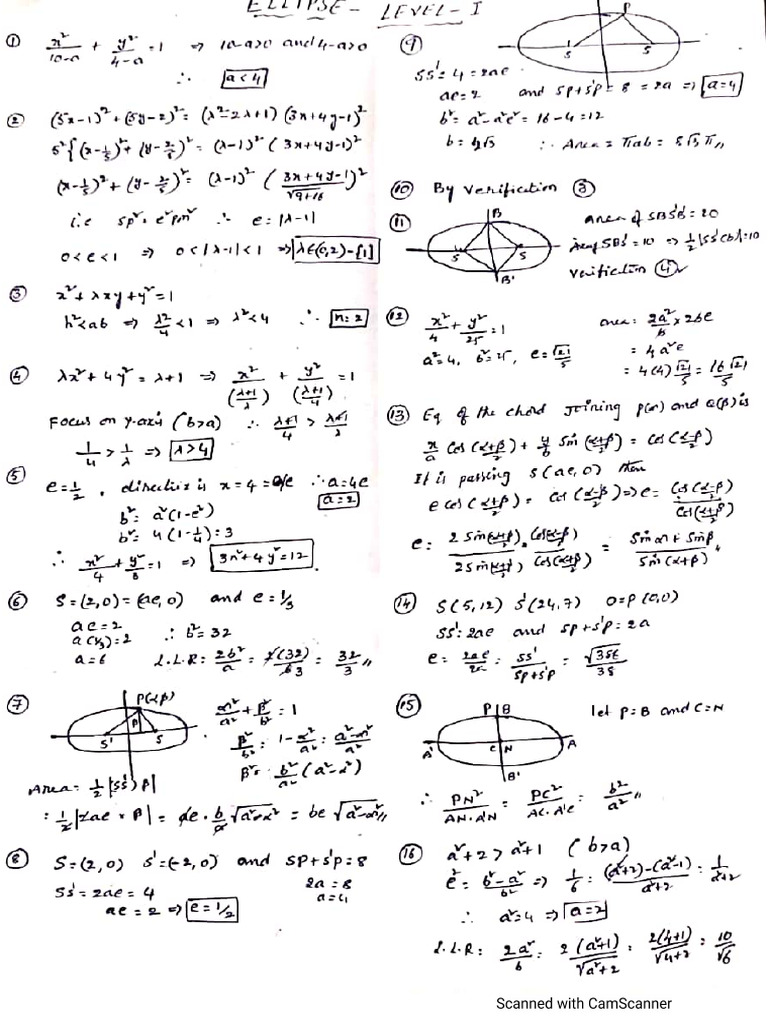 ELLIPSE - LEVEL-I
① x²/(10-a) + y²/(4-a) = 1 ⇒ 10-a>0 and 4-a>0
∴ a<4
② (5x-1)² + (5y-2)² = (λ²-2λ+1) (3x+4y-1)²
5²{(x-1/5)² + (y-2/5)² = (λ-1)² (3x+4y-1)²
(x-1/5)² + (y-2/5)² = (λ-1)² ((3x+4y-1)/√(9+16))²
i.e sp² = e²pm² ∴ e = |λ-1|
0<e<1 ⇒ 0<|λ-1|<1 ⇒ λ∈(0,2)-{1}
③ x²+λxy+y²=1
h²<ab ⇒ λ²/4<1 ⇒ λ²<4 ∴ n=2
④ λx²+4y² = λ+1 ⇒ x²/((λ+1)/λ) + y²/((λ+1)/4) = 1
Focus on y-axis (b>a) ∴ (λ+1)/4 > (λ+1)/λ
1/4 > 1/λ ⇒ λ>4
⑤ e=1/2, directrix is x=4=a/e ∴ a=4e
a=2
b² = a²(1-e²)
b² = 4(1-1/4) = 3
∴ x²/4 + y²/3 = 1 ⇒ 3x²+4y²=12
⑥ S=(2,0)=(ae,0) and e=1/3
ae=2
a(1/3)=2 ∴ b²=32
a=6 L.L.R = 2b²/a = 2(32)/6 3 = 32/3 //
⑦ P(α,β)
β
S' S
α²/a² + β²/b² = 1
β²/b² = 1-α²/a² = (a²-α²)/a²
β² = b²/a² (a²-α²)
Area = 1/2 |(SS') β|
= 1/2 |2ae × β| = ae·b/a √(a²-α²) = be √(a²-α²) //
⑧ S=(2,0) S'=(-2,0) and SP+S'P=8
SS' = 2ae = 4 2a=8
a=4
ae=2 ⇒ e=1/2
⑨ P
S S
SS'=4=2ae
ae=2 and SP+S'P=8=2a ⇒ a=4
b² = a²-a²e² = 16-4=12
b=2√3 ∴ Area = πab = 8√3π //
⑩ By verification ③
⑪ B
S' S
B'
area of SBS'B'=20
Area SBS'=10 ⇒ 1/2|SS'(b)|=10
verification ④
⑫ x²/4 + y²/25 = 1 area = 2a²/b × 2be
a²=4, b²=25, e=√21/5 = 4a²e
= 4(4)√21/5 = 16√21/5
⑬ Eq of the chord Joining P(α) and Q(β) is
x/a cos((α+β)/2) + y/b sin((α+β)/2) = cos((α-β)/2)
It is passing S(ae,0) then
e cos((α+β)/2) = cos((α-β)/2) ⇒ e = cos((α-β)/2)/cos((α+β)/2)
e = 2 sin((α+β)/2) cos((α-β)/2) / 2 sin((α+β)/2) cos((α+β)/2) = (sinα + sinβ)/sin(α+β) //
⑭ S(5,12) S'(24,7) O=P(0,0)
SS'=2ae and SP+S'P=2a
e = 2ae/2a = SS'/(SP+S'P) = √386/38
⑮ P B
A' C N A
B'
let P=B and C=N
∴ PN²/(AN·A'N) = PC²/(AC·A'C) = b²/a² //
⑯ a²+2 > a²+1 (b>a)
e² = (b²-a²)/b² ⇒ 1/6 = ((a²+2)-(a²-1))/(a²+2) = 1/(a²+2)
∴ a²=4 ⇒ a=2
L.L.R = 2a²/b = 2(a²+1)/√(a²+2) = 2(4+1)/√(4+2) = 10/√6
Scanned with CamScanner